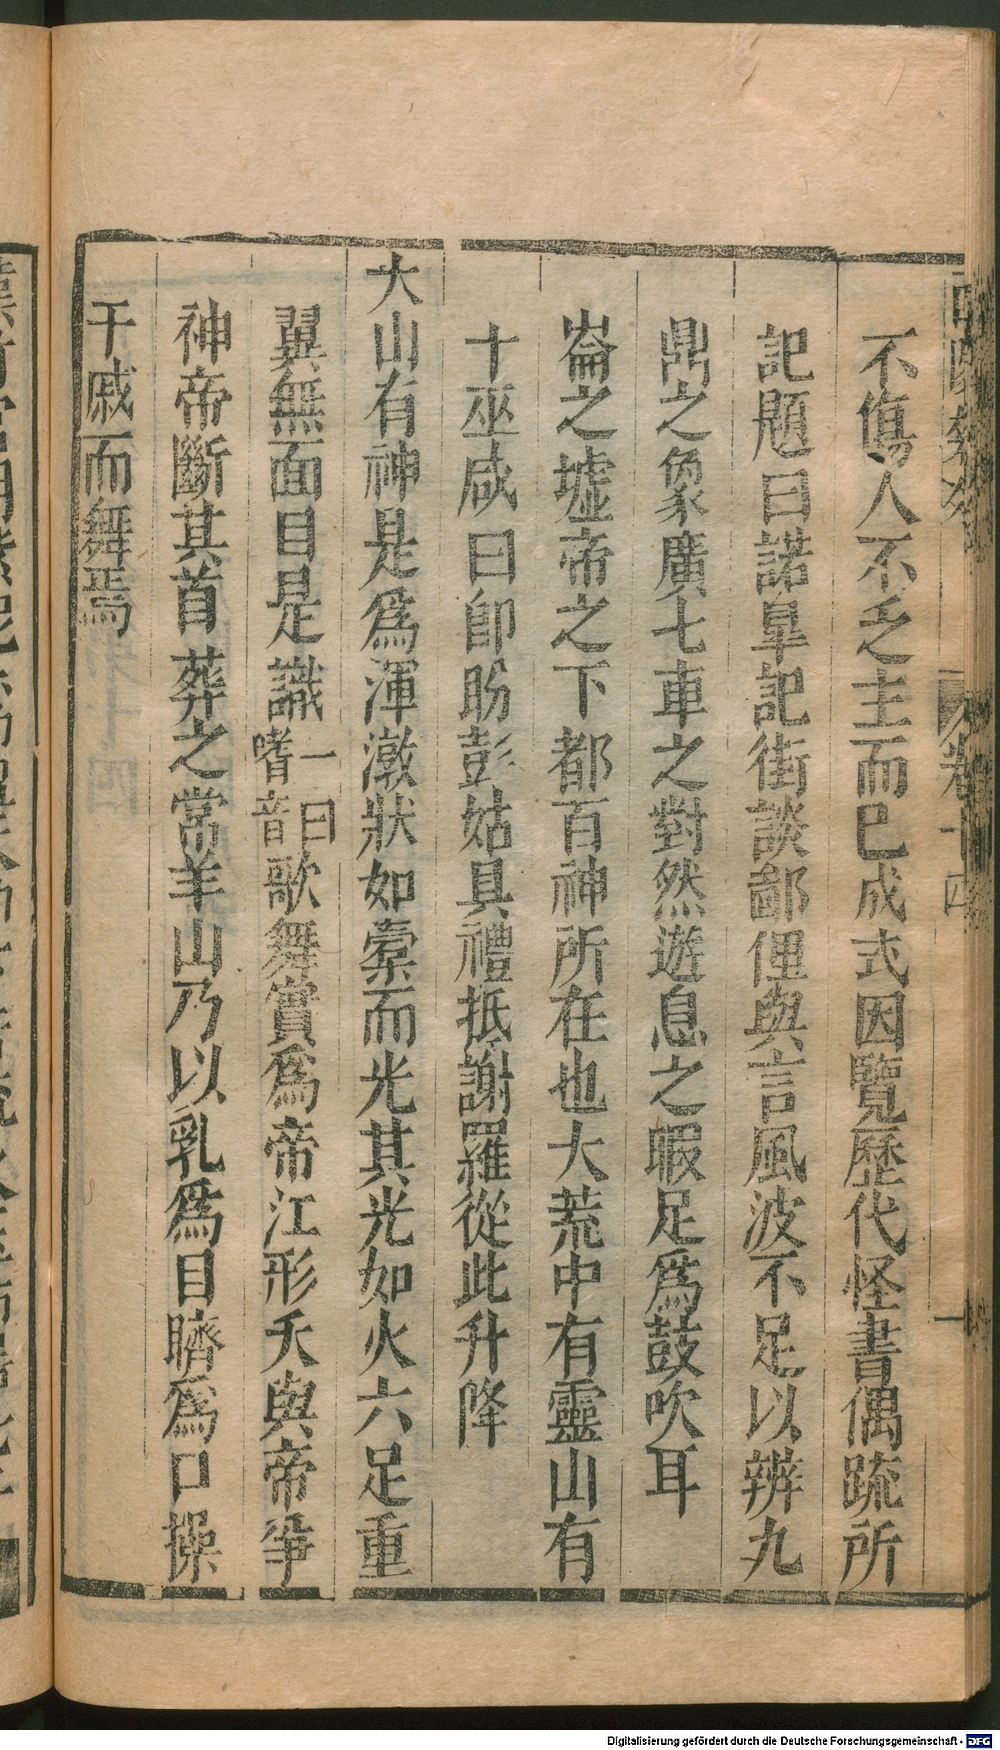 不傷人不乏主而已成式因覽歷代怪書偶䟽所
記題曰諾臯記街談鄙俚與言風波不足以辨九
鼎之象廣七車之對然遊息之暇足爲鼓吹耳
崙之墟帝之下都百神所在也大荒中有靈山有
十巫咸曰卽盼彭姑具禮抵謝羅從此升降
大山有神是爲渾潡狀如橐而光其光如火六足重
翼無面目是識一曰嗜音歌舞實爲帝江形夭與帝爭
神帝斷其首葬之常羊山乃以乳爲目臍爲口操
干戚而舞焉
卷十四
一
Digitalisierung gefördert durch die Deutsche Forschungsgemeinschaft - DFG